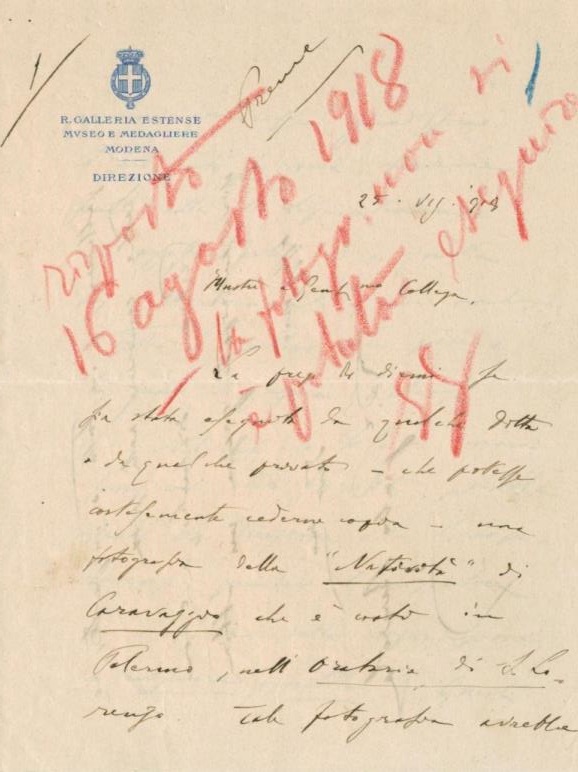 R. GALLERIA ESTENSE
MVSEO E MEDAGLIERE
MODENA
DIREZIONE
Firenze
risposto
16 agosto 1918
la fotogr. non si
è potuta eseguire
25 · VII · 918
Illustre e Collega,
La prego di dirmi se
sia stata eseguita da qualche ditta
o da qualche privato – che potesse
cortesemente cederne copia – una
fotografia della "Natività" di
Caravaggio che è costì in
Palermo, nell'Oratorio di S. Lo-
renzo. Tale fotografia avrebbe